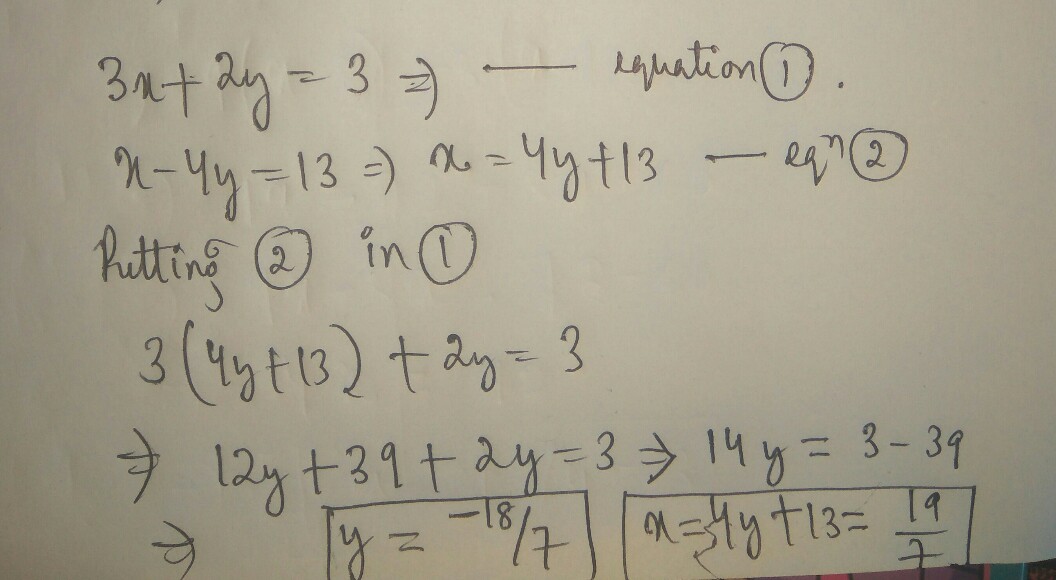 3x + 2y = 3 ⇒ — equation ①.
x - 4y = 13 ⇒ x = 4y + 13 — eqⁿ ②
Putting ② in ①
3(4y+13) + 2y = 3
⇒ 12y + 39 + 2y = 3 ⇒ 14y = 3 - 39
⇒ y = -18/7 x = 4y + 13 = 19/7